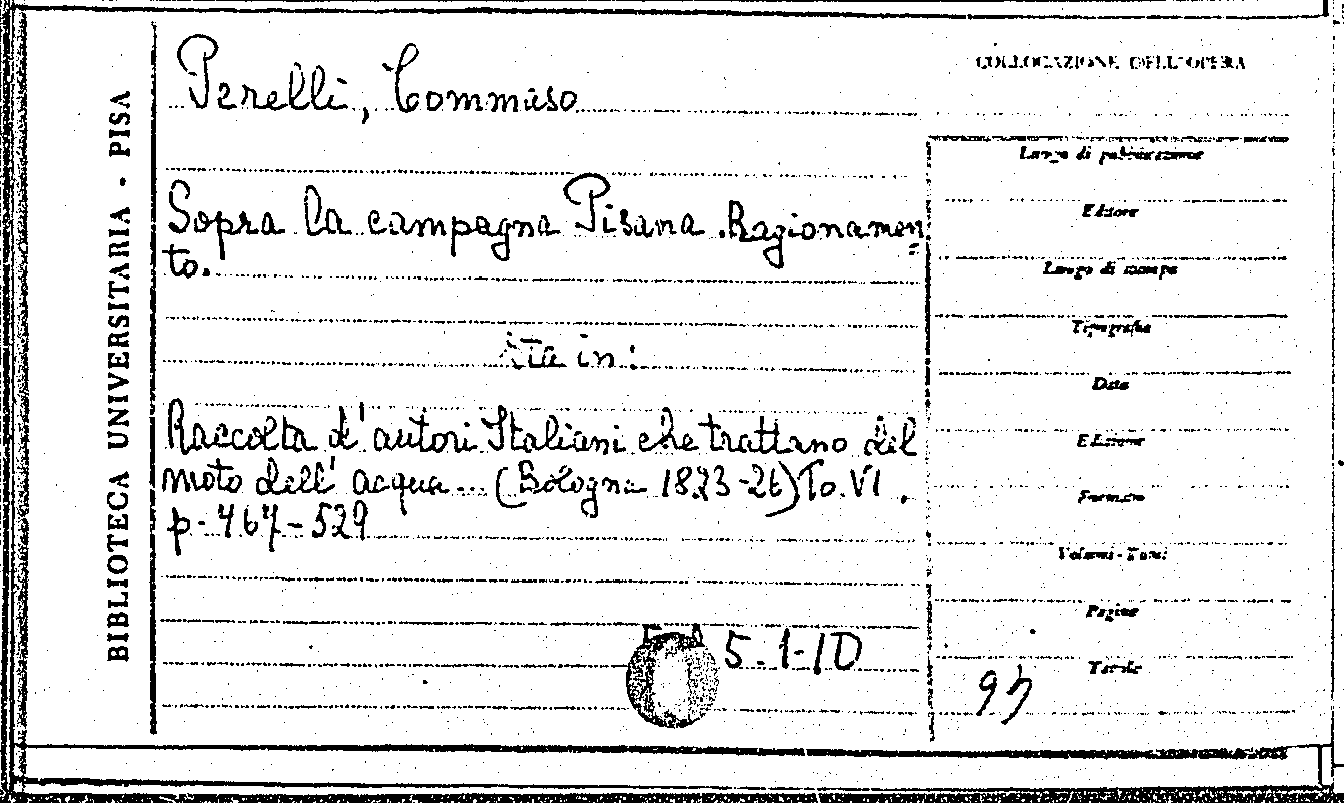 BIBLIOTECA UNIVERSITARIA - PISA
Perelli, Tommaso
Sopra la campagna Pisana. Ragionamen=
to.
sta in:
Raccolta d'autori Italiani che trattano del
moto dell'acqua... (Bologna 1823-26) To. VI.
p. 467-529
5.1-10
COLLOCAZIONE DELL'OPERA
Luogo di pubblicazione
Editore
Luogo di stampa
Tipografia
Data
Edizione
Formato
Volumi - Tomi
Pagine
Tavole